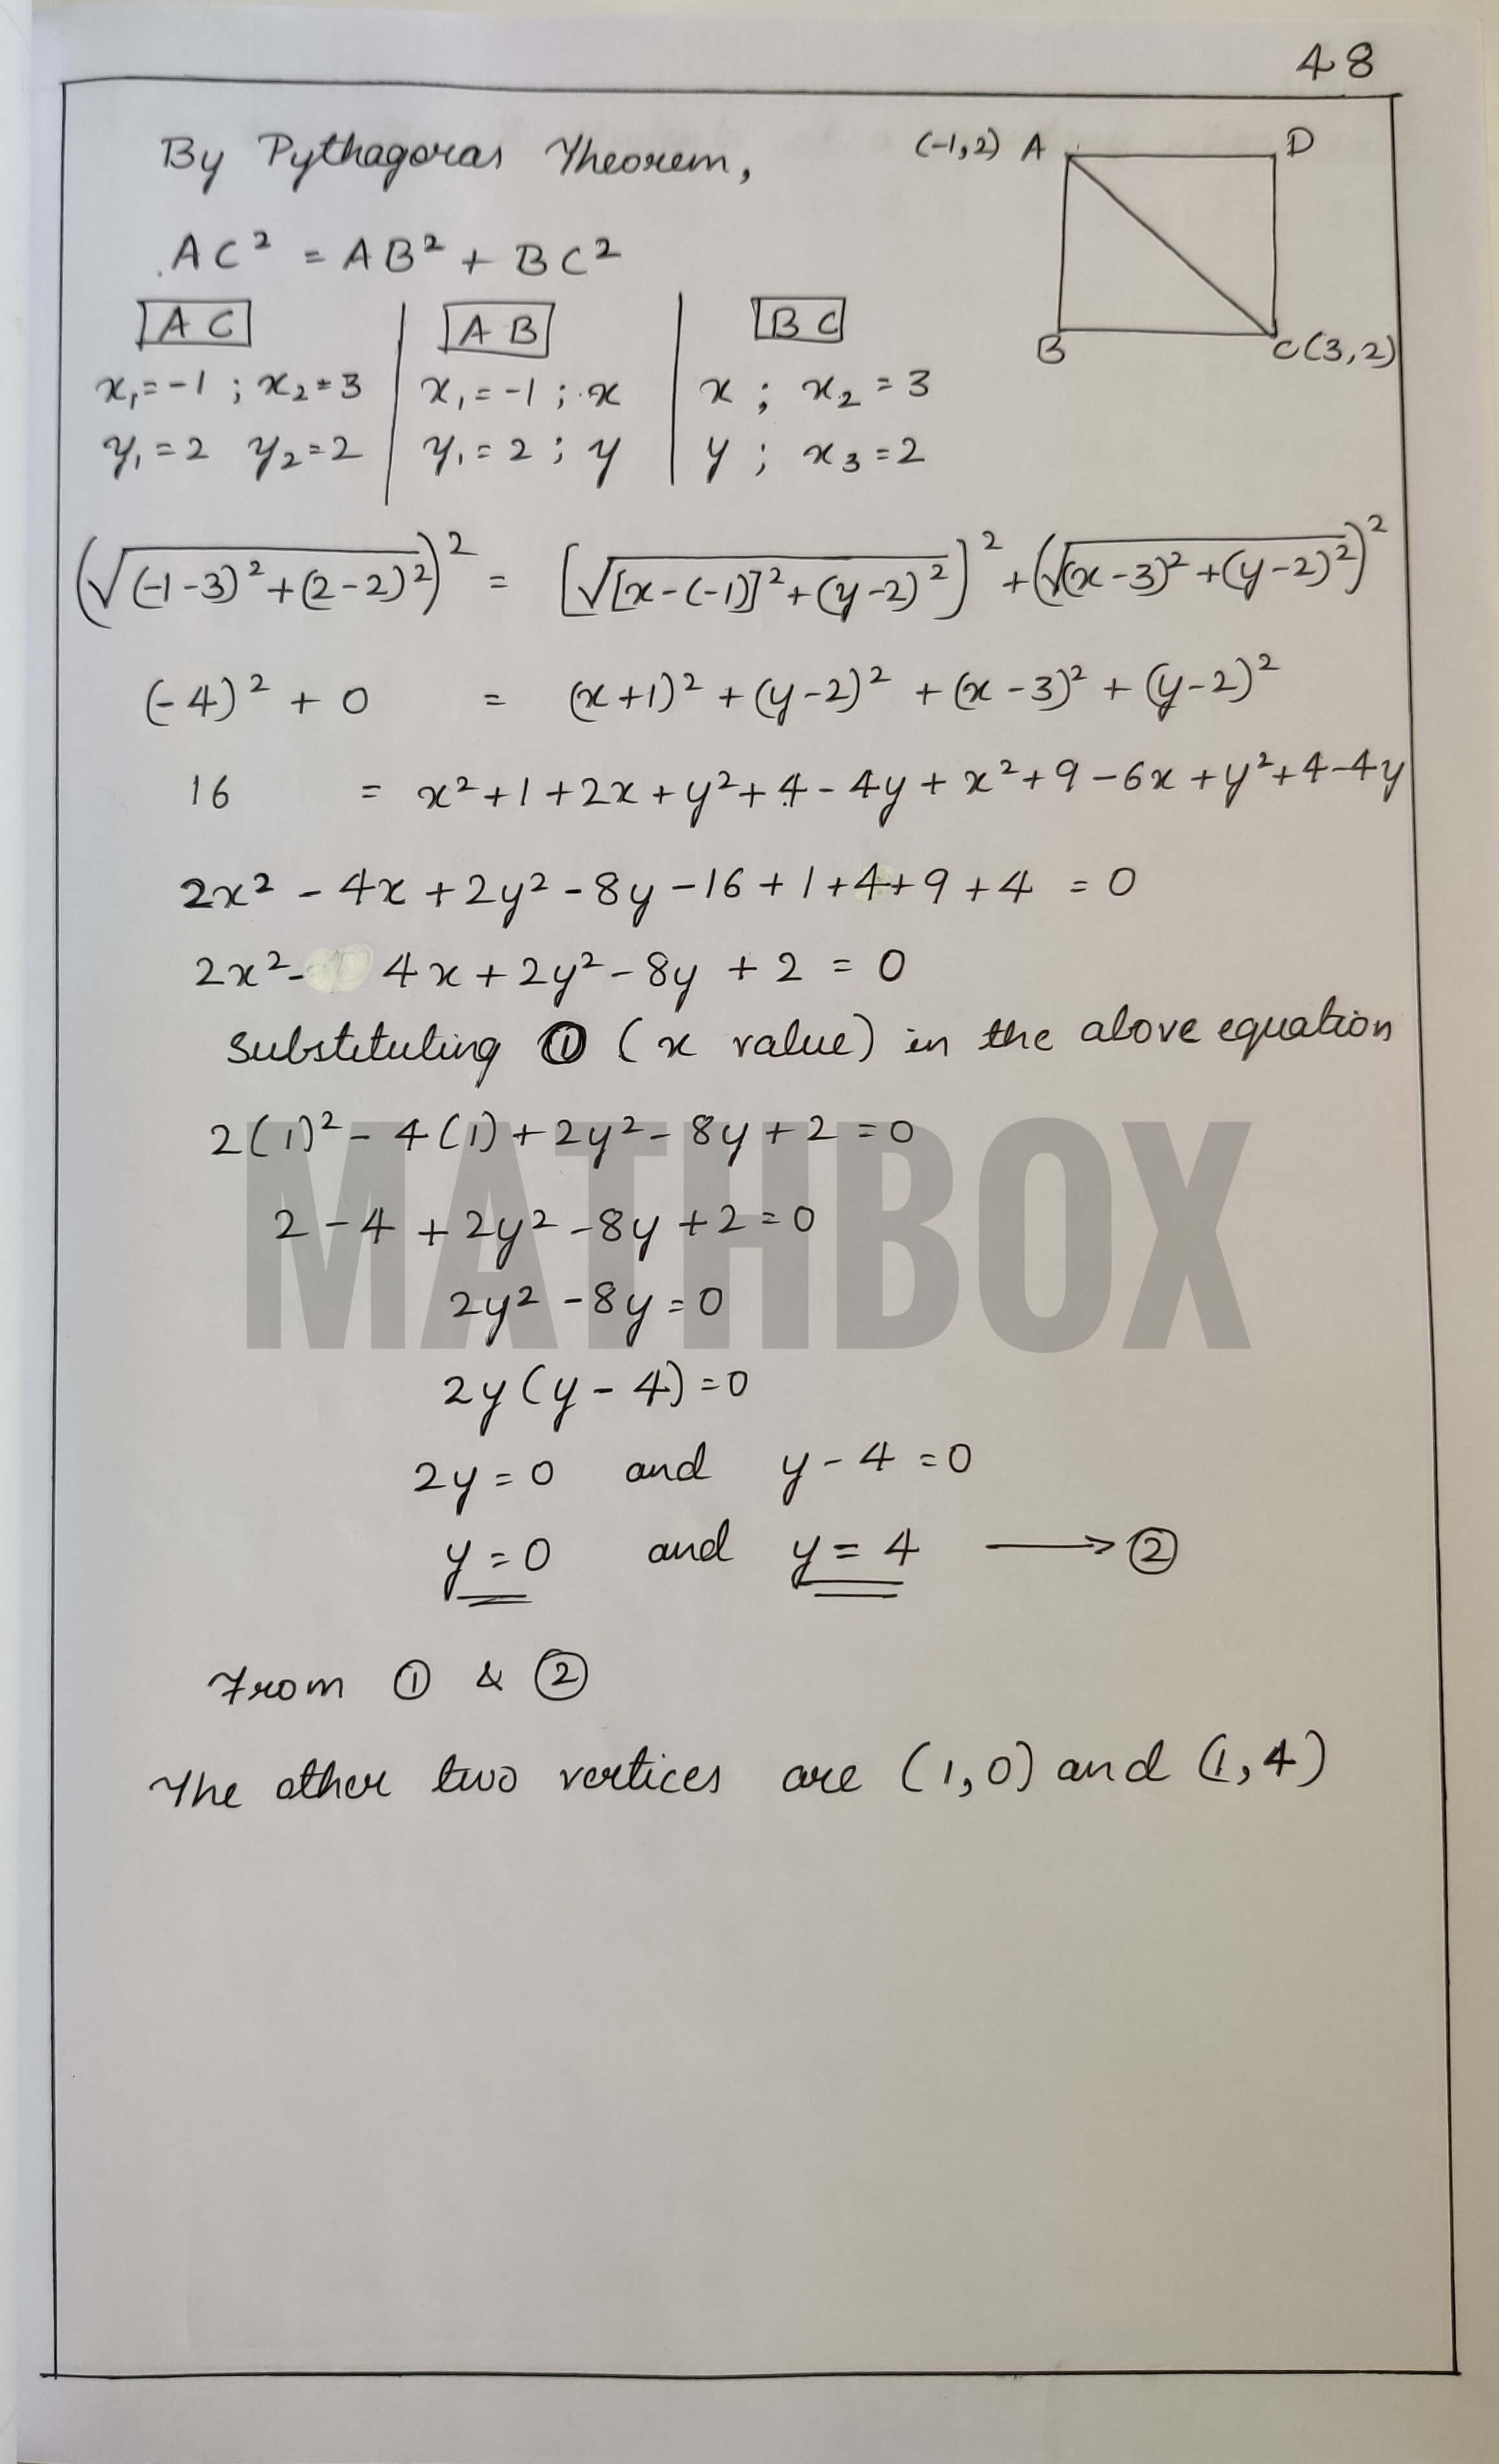 48
By Pythagoras Theorem,
(-1,2) A D
B C(3,2)
AC² = AB² + BC²
AC | AB | BC
x₁=-1 ; x₂=3 | x₁=-1 ; x | x ; x₂=3
y₁=2 y₂=2 | y₁=2 ; y | y ; x₃=2
(√(-1-3)²+(2-2)²)² = [√[x-(-1)]²+(y-2)²]² + (√(x-3)²+(y-2)²)²
(-4)² + 0 = (x+1)² + (y-2)² + (x-3)² + (y-2)²
16 = x²+1+2x+y²+4-4y+x²+9-6x+y²+4-4y
2x² - 4x + 2y² - 8y - 16 + 1 + 4 + 9 + 4 = 0
2x² - 4x + 2y² - 8y + 2 = 0
substituting ① (x value) in the above equation
2(1)² - 4(1) + 2y² - 8y + 2 = 0
MATHBOX
2 - 4 + 2y² - 8y + 2 = 0
2y² - 8y = 0
2y(y-4) = 0
2y = 0 and y - 4 = 0
y = 0 and y = 4 → ②
From ① & ②
The other two vertices are (1,0) and (1,4)